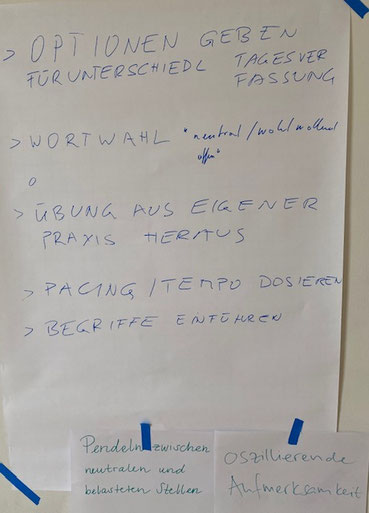 > OPTIONEN GEBEN
FÜR UNTERSCHIEDL TAGESVER
FASSUNG
> WORTWAHL "neutral/wohlwollend
offen"
o
> ÜBUNG AUS EIGENER
PRAXIS HERAUS
> PACING/TEMPO DOSIEREN
> BEGRIFFE EINFÜHREN
Pendeln zwischen
neutralen und
belasteten Stellen
oszillierende
Aufmerksamkeit